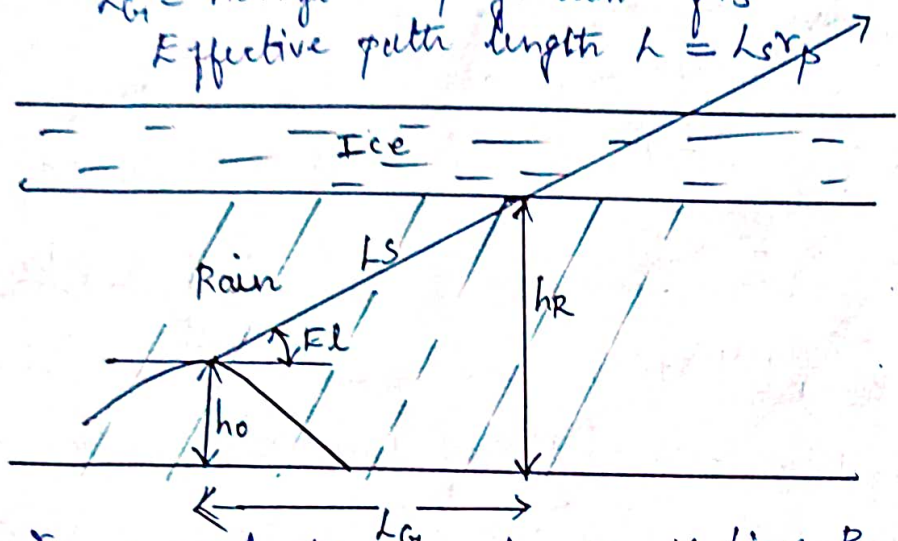 Effective path length L = LSrp
Ice
LS
Rain
hR
El
ho
LG